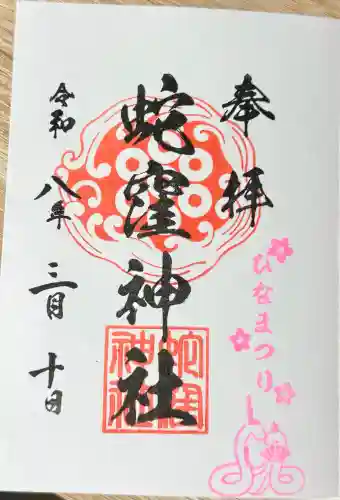 奉拝
蛇窪神社
蛇窪
神社
ひなまつり
令和八年三月十日